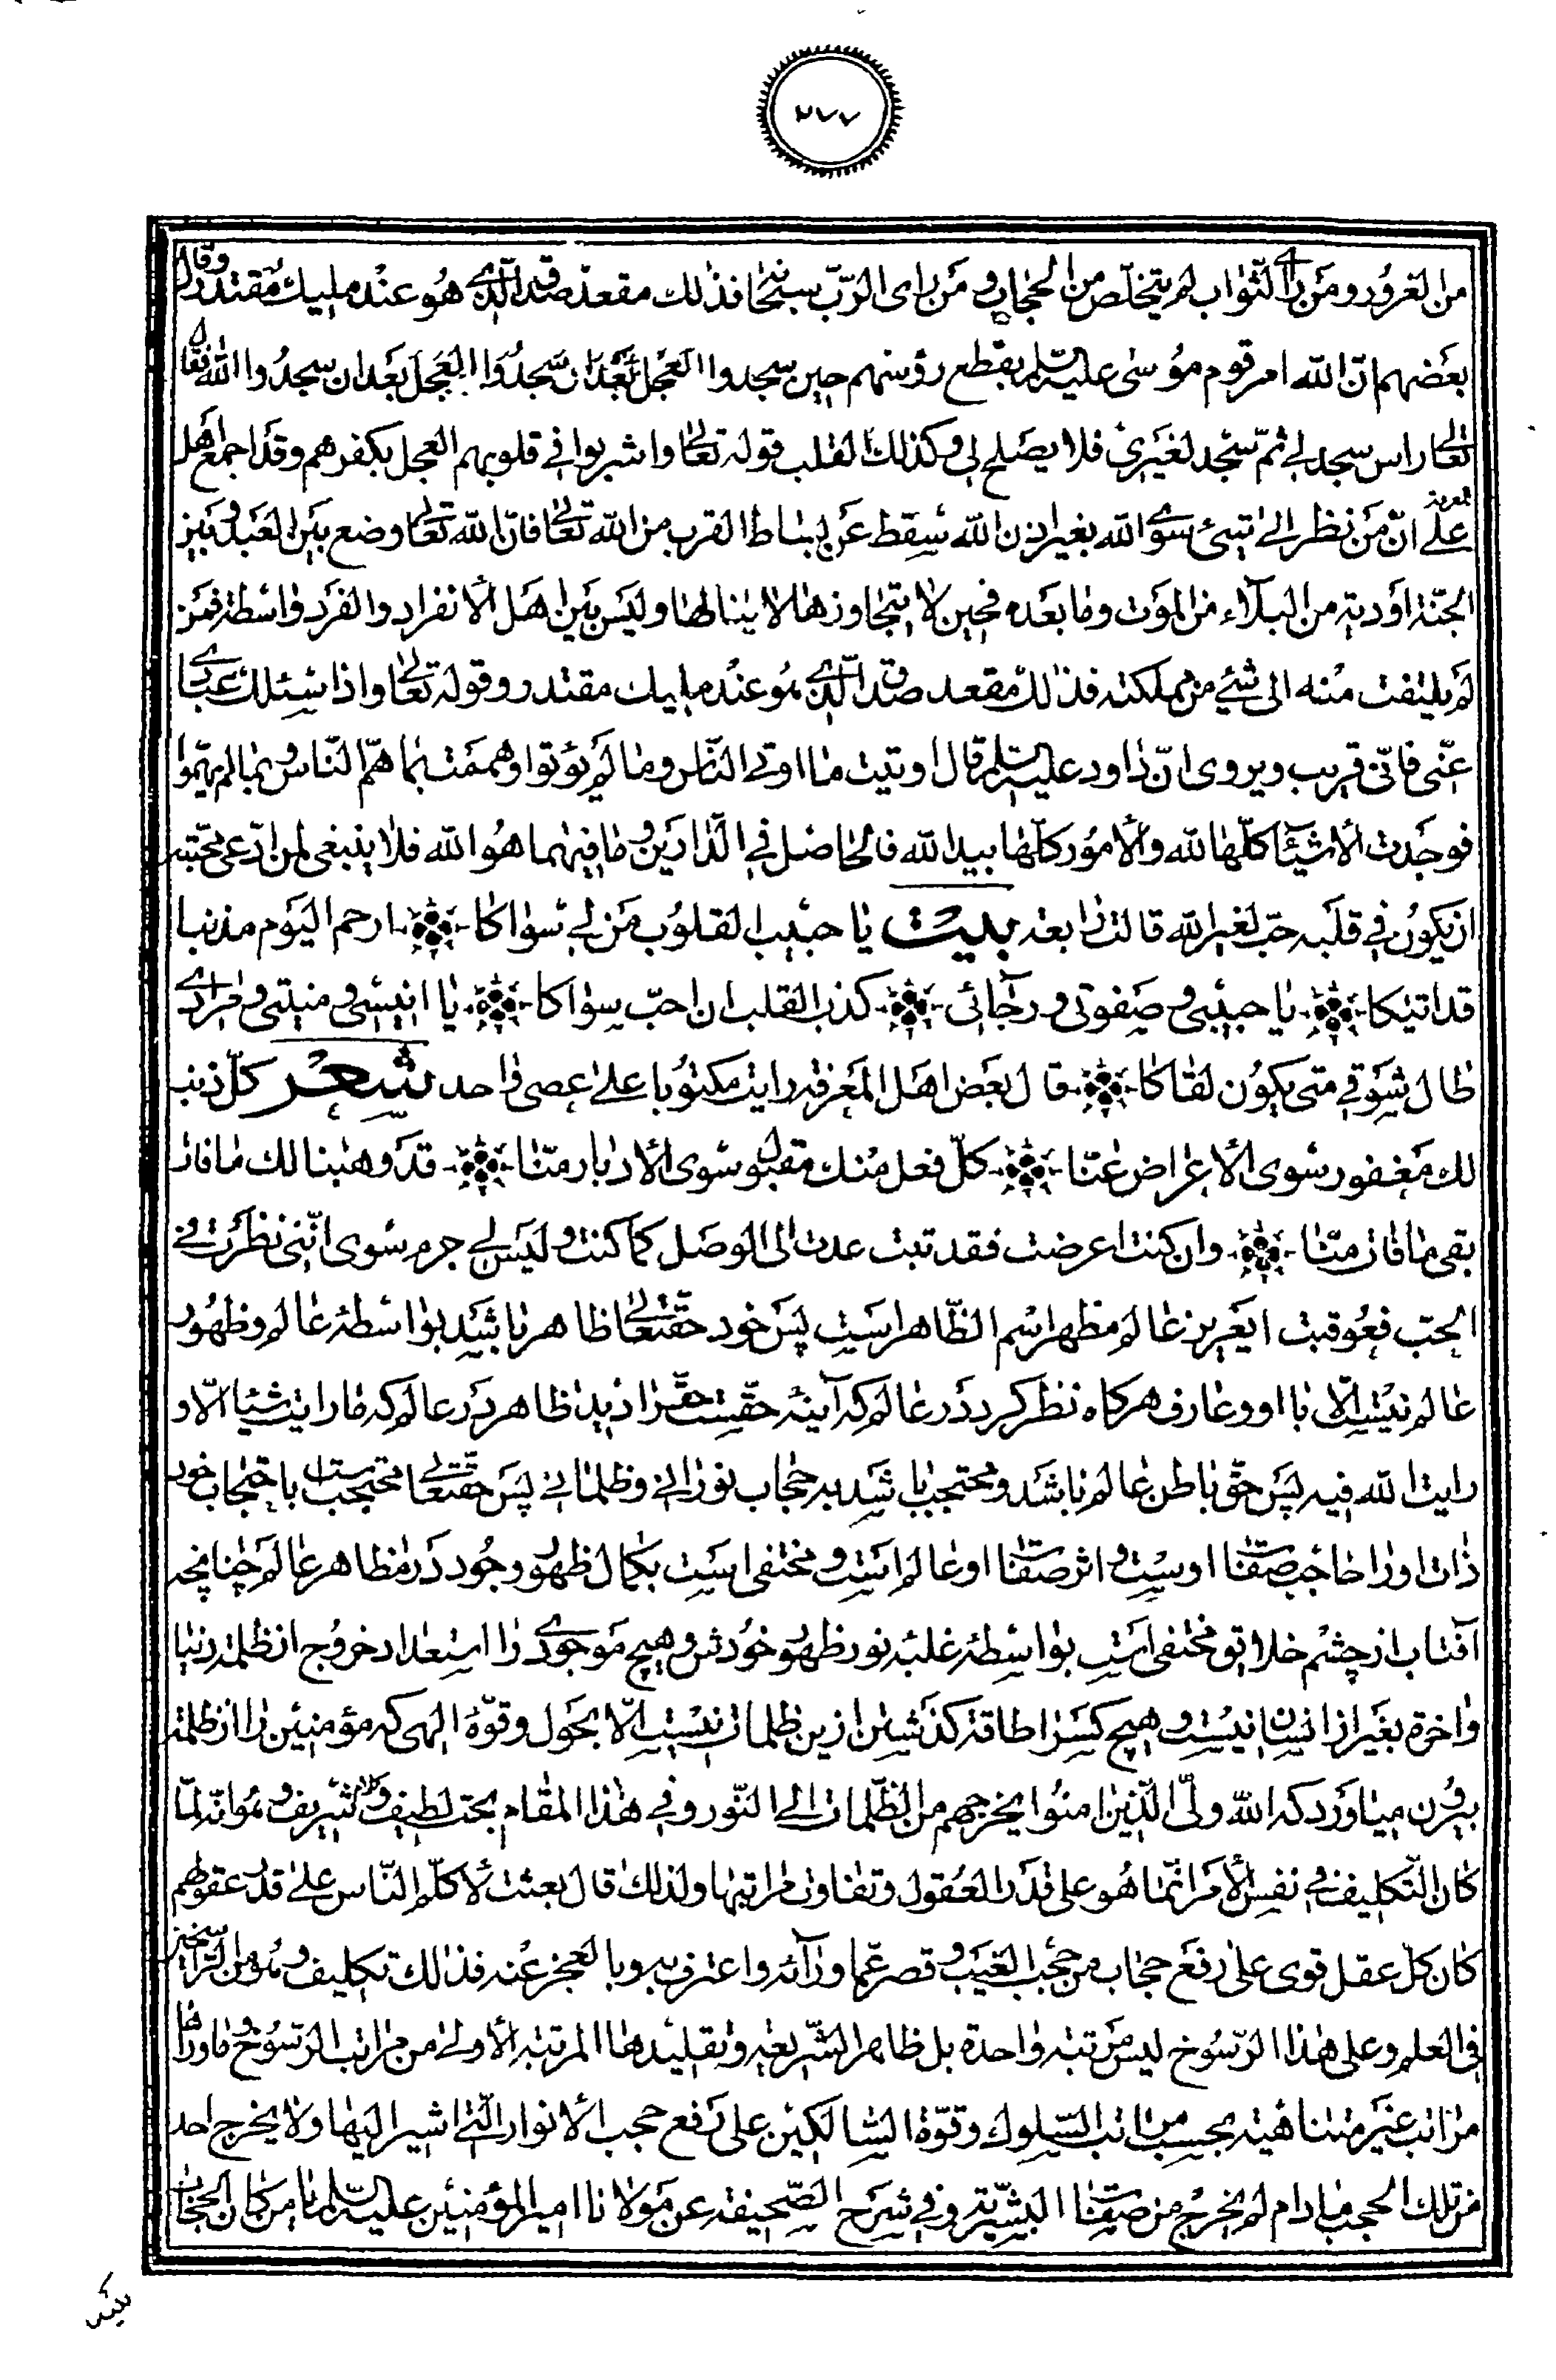 ٢٧٧
من الغرور ومن رأى الثواب لم يتخلّص من الحجاب ومن رأى الربّ سبحانه فذلك مقعد صدق الّذى هو عند مليك مقتدر وقال
بعضهم انّ الله امر قوم موسى عليه السلم بقطع رؤسهم حين سجدوا العجل بعد ان سجدوا العجل بعد ان سجدوا الله فقال
تعالى راس سجد لى ثمّ سجد لغيرى فلا يصلح لى وكذلك القلب قوله تعالى واشربوا فى قلوبهم العجل بكفرهم وقد اجمع اهل المعرفة
على انّ من نظر الى شئ سوى الله بغير اذن الله سقط عن بساط القرب من الله تعالى فانّ الله تعالى وضع بين العبد وبين
الجنّة اودية من البلآء من الموت وما بعده فحين لا يتجاوزها لا ينالها وليس بين اهل الانفراد والفرد واسطة فمن
لم يلتفت منه الى شئ من مملكته فذلك مقعد صدق الّذى هو عند مليك مقتدر وقوله تعالى واذا سئلك عبادى
عنّى فانّى قريب ويروى انّ داود عليه السلم قال اوتيت ما اوتى النّاس وما لم يؤتوا وهممت بما همّ النّاس وبما لم يهمّوا
فوجدت الاشيآء كلّها لله والامور كلّها بيد الله فالحاصل فى الدّارين وما فيهما هو الله فلا ينبغى لمن ادّعى محبّته
ان يكون فى قلبه حبّ لغير الله قالت رابعه بيت يا حبيب القلوب من لى سواكا ارحم اليوم مذنبا
قد اتيكا يا حبيبى وصفوتى ورجآئى كذب القلب ان احبّ سواكا يا انيسى ومنيتى ومرادى
طال شوقى متى يكون لقاكا قال بعض اهل المعرفة رايت مكتوبا على عصى واحد شعر كلّ ذنب
لك مغفور سوى الاعراض عنّا كلّ فعل منك مقبول سوى الادبار منّا قد وهبنا لك ما فات
بقى ما فات منّا وان كنت اعرضت فقد تبت عدت الى الوصل كما كنت وليس لى جرم سوى انّنى نظرت فى
الحبّ فعوقبت ايعزيز عالم مظهر اسم الظّاهر است پس خود حقتعالى ظاهر باشد بواسطۀ عالم وظهور
عالم نيست الّا با او وعارف هركاه نظر كرد در عالم كه آينۀ حقست حقرا ديد ظاهر در عالم كه ما رايت شيئا الّا و
رايت الله فيه پس حقّ باطن عالم باشد ومحتجب باشد بحجاب نورانى وظلمانى پس حقتعالى محتجبست باحتجاب خود
ذات او را حاجب صفات اوست واثر صفات او عالم است ومختفى است بكمال ظهور وجود در مظاهر عالم چنانچه
آفتاب از چشم خلايق مختفى است بواسطۀ غلبۀ نور ظهور خودش وهيچ موجودى را استعداد خروج از ظلمت دنيا
واخرة بغير از انسان نيست وهيچ كسرا طاقت كذشتن ازين ظلمات نيست الّا بحول وقوّۀ الهى كه مؤمنين را از ظلمة
بيرون مياورد كه الله ولىّ الّذين امنوا يخرجهم من الظّلمات الى النّور وفى هذا المقام بحث لطيف وكلام شريف وهو انّه لمّا
كان التّكليف فى نفس الأمر انّما هو على قدر العقول وتفاوت مراتبها ولذلك قال بعثت لاكلّم النّاس على قدر عقولهم
كان كلّ عقل قوى على رفع حجاب من حجب الغيب وقصر عمّا ورآئه واعترف به وبالعجز عنه فذلك تكليفه وهو من الرّاسخين
فى العلم وعلى هذا الرّسوخ ليس مرتبة واحدة بل ظاهر الشّريعه وتقليدها المرتبة الأولى من مراتب الرّسوخ وماوراها
مراتب غير متناهية بحسب مراتب السّلوك وقوّة السّالكين على رفع حجب الانوار الّتى اشير اليها ولا يخرج احد
من تلك الحجب مادام لم يخرج من صفات البشريّة وفى شرح الصّحيفة عن مولانا امير المؤمنين عليه السلم يا من كان الحجاب